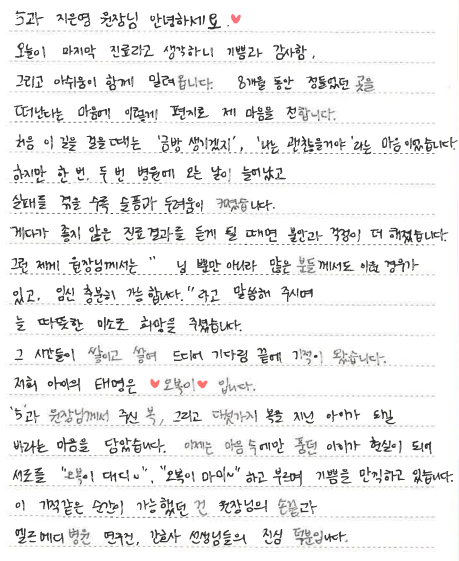 5과 지은영 원장님 안녕하세요. ♥
오늘이 마지막 진료라고 생각하니 기쁨과 감사함,
그리고 아쉬움이 함께 밀려옵니다. 8개월 동안 정들었던 곳을
떠난다는 마음에 이렇게 편지로 제 마음을 전합니다.
처음 이 길을 걸을때는 '금방 생기겠지', '나는 괜찮을거야'라는 마음이었습니다.
하지만 한 번, 두 번 병원에 오는 날이 늘어났고
실패를 겪을 수록 슬픔과 두려움이 커졌습니다.
게다가 좋지 않은 진료결과를 듣게 될 때면 불안과 걱정이 더 해졌습니다.
그런 제게 원장님께서는 " 님 뿐만 아니라 많은 분들께서도 이런 경우가
있고, 임신 충분히 가능합니다."라고 말씀해 주시며
늘 따뜻한 미소로 희망을 주셨습니다.
그 시간들이 쌓이고 쌓여 드디어 기다림 끝에 기적이 왔습니다.
저희 아이의 태명은 ♥오복이♥ 입니다.
'5'과 원장님께서 주신 복, 그리고 다섯가지 복을 지닌 아이가 되길
바라는 마음을 담았습니다. 이제는 마음 속에만 품던 아이가 현실이 되어
서로를 "오복이 대디~", "오복이 마미~" 하고 부르며 기쁨을 만끽하고 있습니다.
이 기적같은 순간이 가능했던 건 원장님의 손길과
엘르메디 병원 연구진, 간호사 선생님들의 진심 덕분입니다.